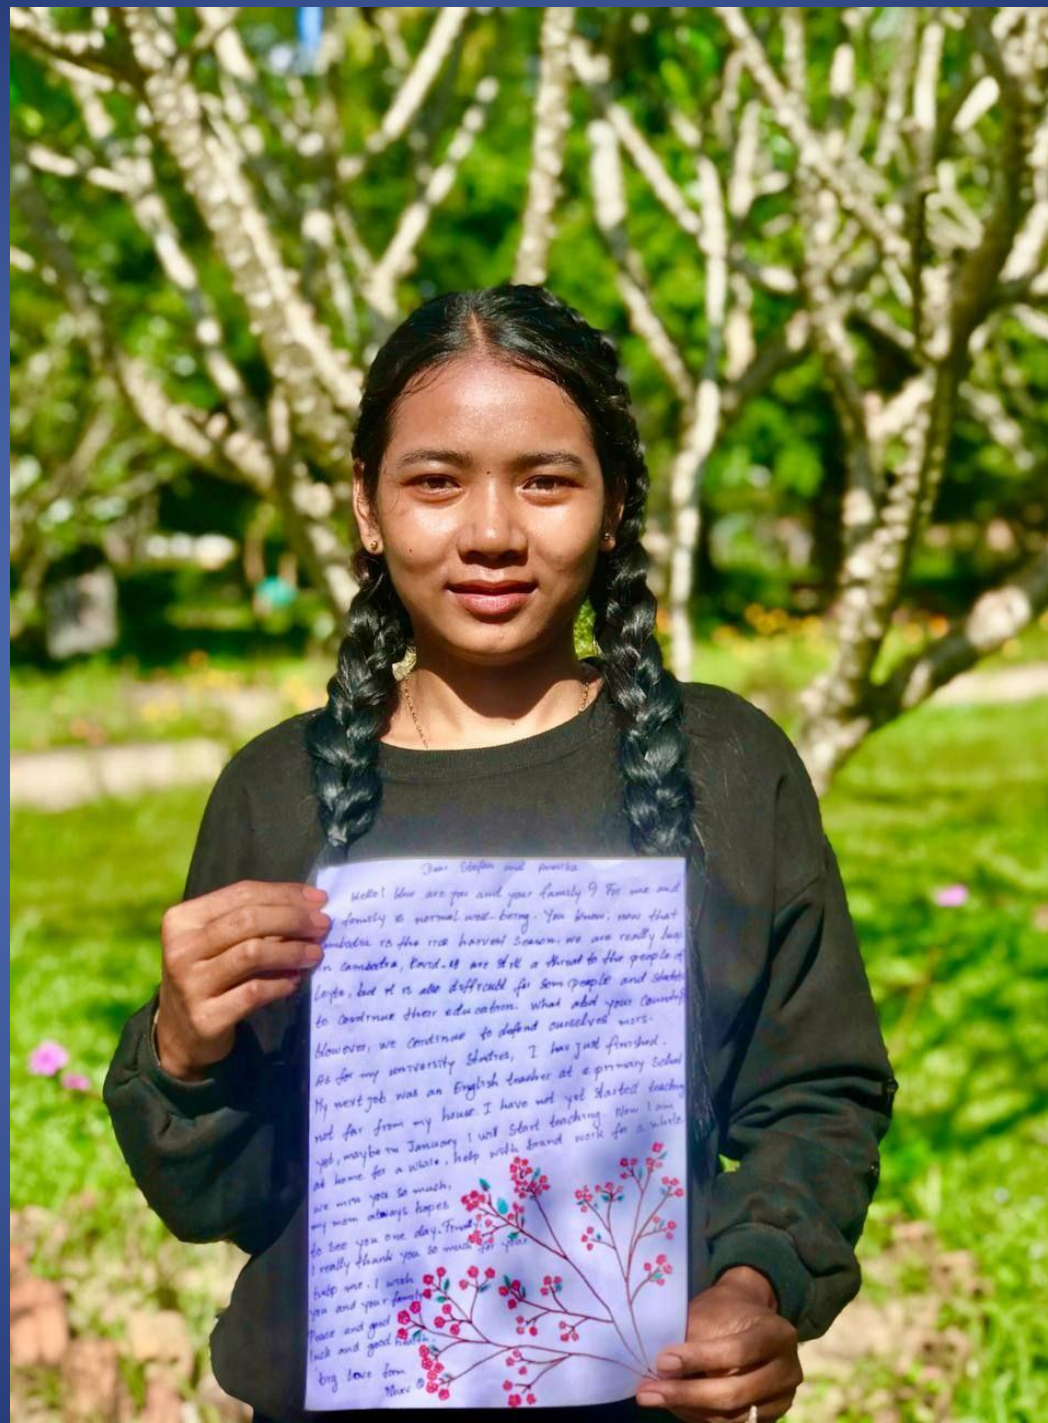 Dear Steffen and Annika
Hello! How are you and your family? For me and
family is normal well-being. You know, now that
Cambodia is the rice harvest season, we are really busy
In cambodia, Kovid-19 are still a threat to the people of
but it is also difficult for som people and
to continue their education. What abot your country?
However, we continue to defend ourselves more.
As for my university studies, I hav just finished.
My next job was an English teacher at a primary school
not far from my house. I have not yet started teaching
yet, maybe in January I will start teaching. Now I am
at home for a while, help with work for a while.
we miss you so much,
my mom always hopes
to see you one day.
I really thank you so much for your
help me. I wish
you and your family
Peace and good
luck and good health.
big love from